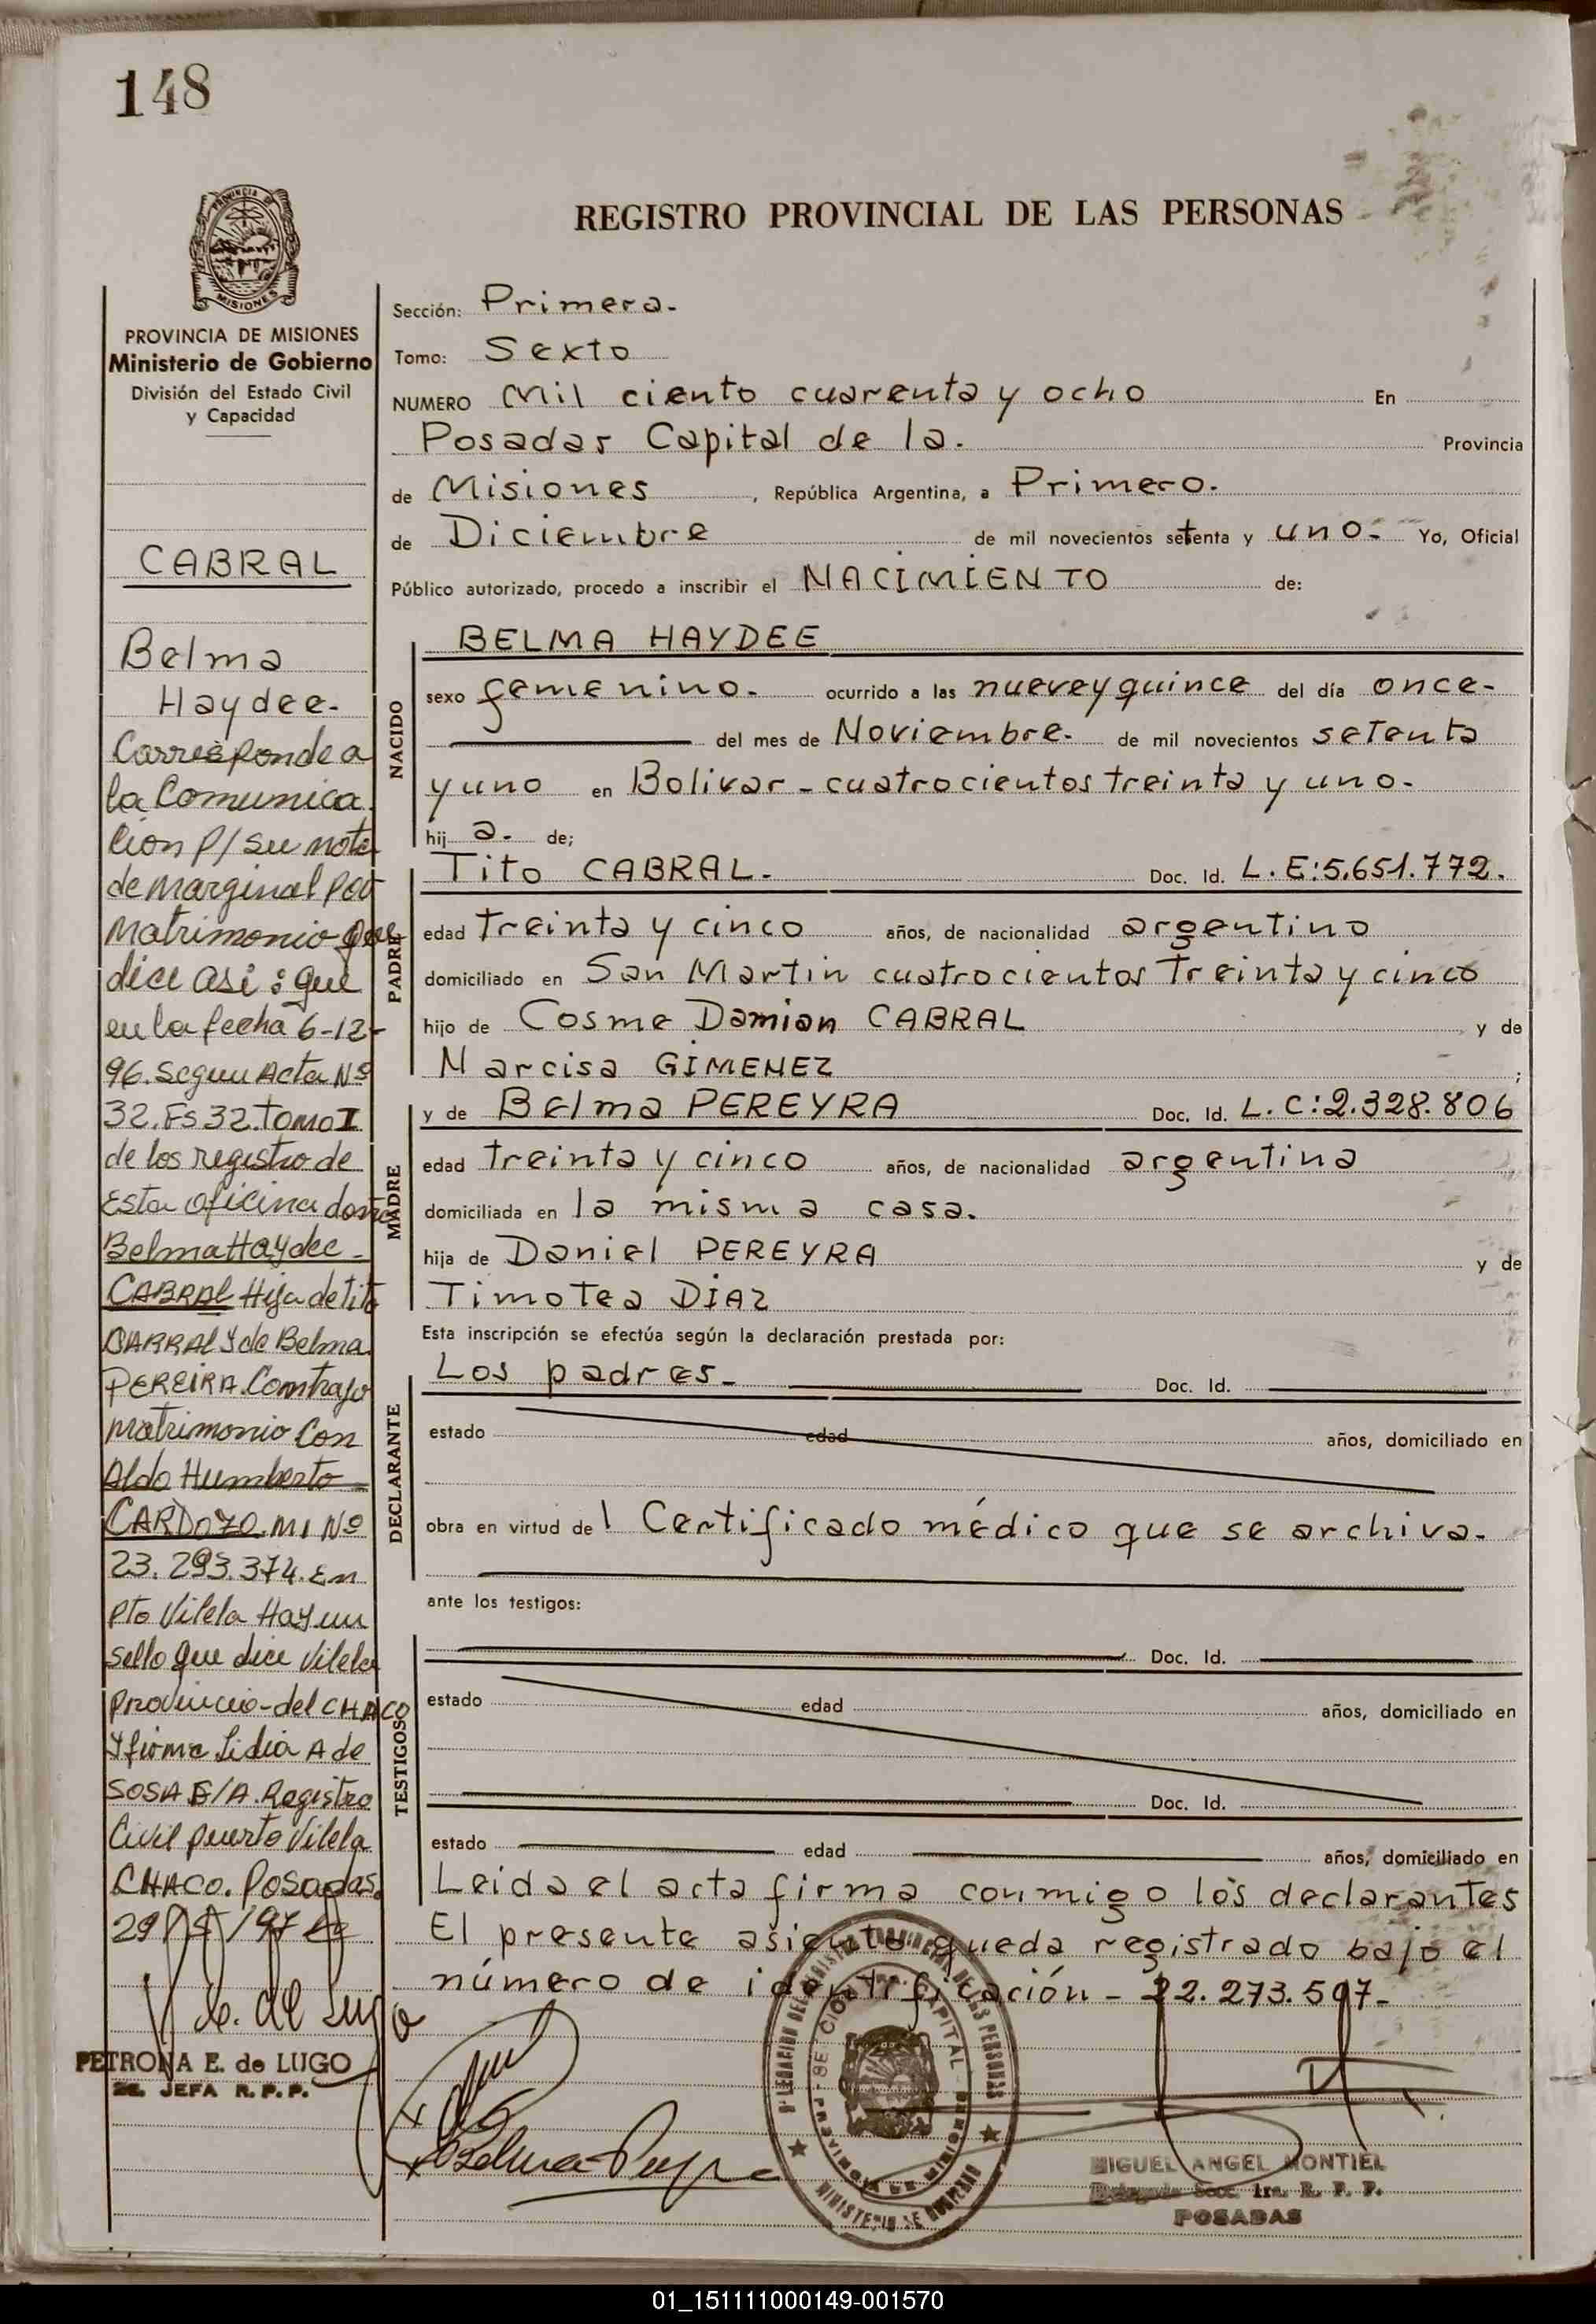 148
PROVINCIA DE
MISIONES
PROVINCIA DE MISIONES
Ministerio de Gobierno
División del Estado Civil
y Capacidad
CABRAL
Belma
Haydee.
Corresponde a
la Comunica
cion P/ su nota
de marginal por
Matrimonio que
dice asi: que
en la fecha 6-12-
96. Segun Acta Nº
32. Fs 32. Tomo I
de los registro de
Esta oficina doña
Belma Haydee
CABRAL Hija de tito
CABRAL Y de Belma
PEREIRA. Contrajo
Matrimonio Con
Aldo Humberto
CARDOZO. MI Nº
23.293.374. En
Pto Vilela Hay un
sello que dice Vilela
Provincia-del CHACO
Y firma Lidia A de
SOSA E/A. Registro
Civil puerto Vilela
CHACO. Posadas.
29/ /97
de Lugo
PETRONA E. de LUGO
JEFA R. P. P.
REGISTRO PROVINCIAL DE LAS PERSONAS
Sección: Primera.
Tomo: Sexto
NUMERO Mil ciento cuarenta y ocho En
Posadas Capital de la. Provincia
de Misiones, República Argentina, a Primero.
de Diciembre de mil novecientos setenta y uno. Yo, Oficial
Público autorizado, procedo a inscribir el NACIMIENTO de:
NACIDO
BELMA HAYDEE
sexo femenino. ocurrido a las nueve y quince del día once-
del mes de Noviembre. de mil novecientos setenta
y uno en Bolivar - cuatrocientos treinta y uno.
hij a. de;
PADRE
Tito CABRAL. Doc. Id. L.E:5.651.772.
edad treinta y cinco años, de nacionalidad argentino
domiciliado en San Martin cuatrocientos treinta y cinco
hijo de Cosme Damian CABRAL y de
Narcisa GIMENEZ ;
MADRE
y de Belma PEREYRA Doc. Id. L.C:2.328.806
edad treinta y cinco años, de nacionalidad argentina
domiciliada en la misma casa.
hija de Daniel PEREYRA y de
Timotea DIAZ
Esta inscripción se efectúa según la declaración prestada por:
DECLARANTE
Los padres. Doc. Id.
estado edad años, domiciliado en
obra en virtud del Certificado médico que se archiva.
ante los testigos:
TESTIGOS
Doc. Id.
estado edad años, domiciliado en
Doc. Id.
estado edad años, domiciliado en
Leida el acta firma conmigo los declarantes
El presente asiento queda registrado bajo el
número de identificación - 22.273.507-
Belma Pereyra
MIGUEL ANGEL MONTIEL
Delegado Secc. 1ra. R. P. P.
POSADAS
01_151111000149-001570